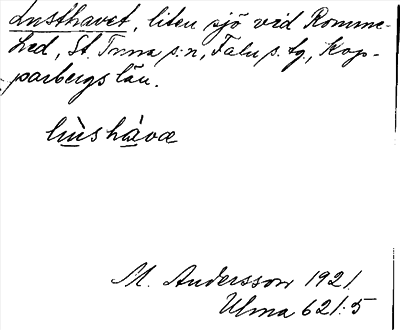 Lusthavet, liten sjö vid Romme-
hed, St. Tuna s:n, Falu s. fg., Kop-
parbergs län.
lùshàvæ
M. Andersson 1921.
Ulma 621:5